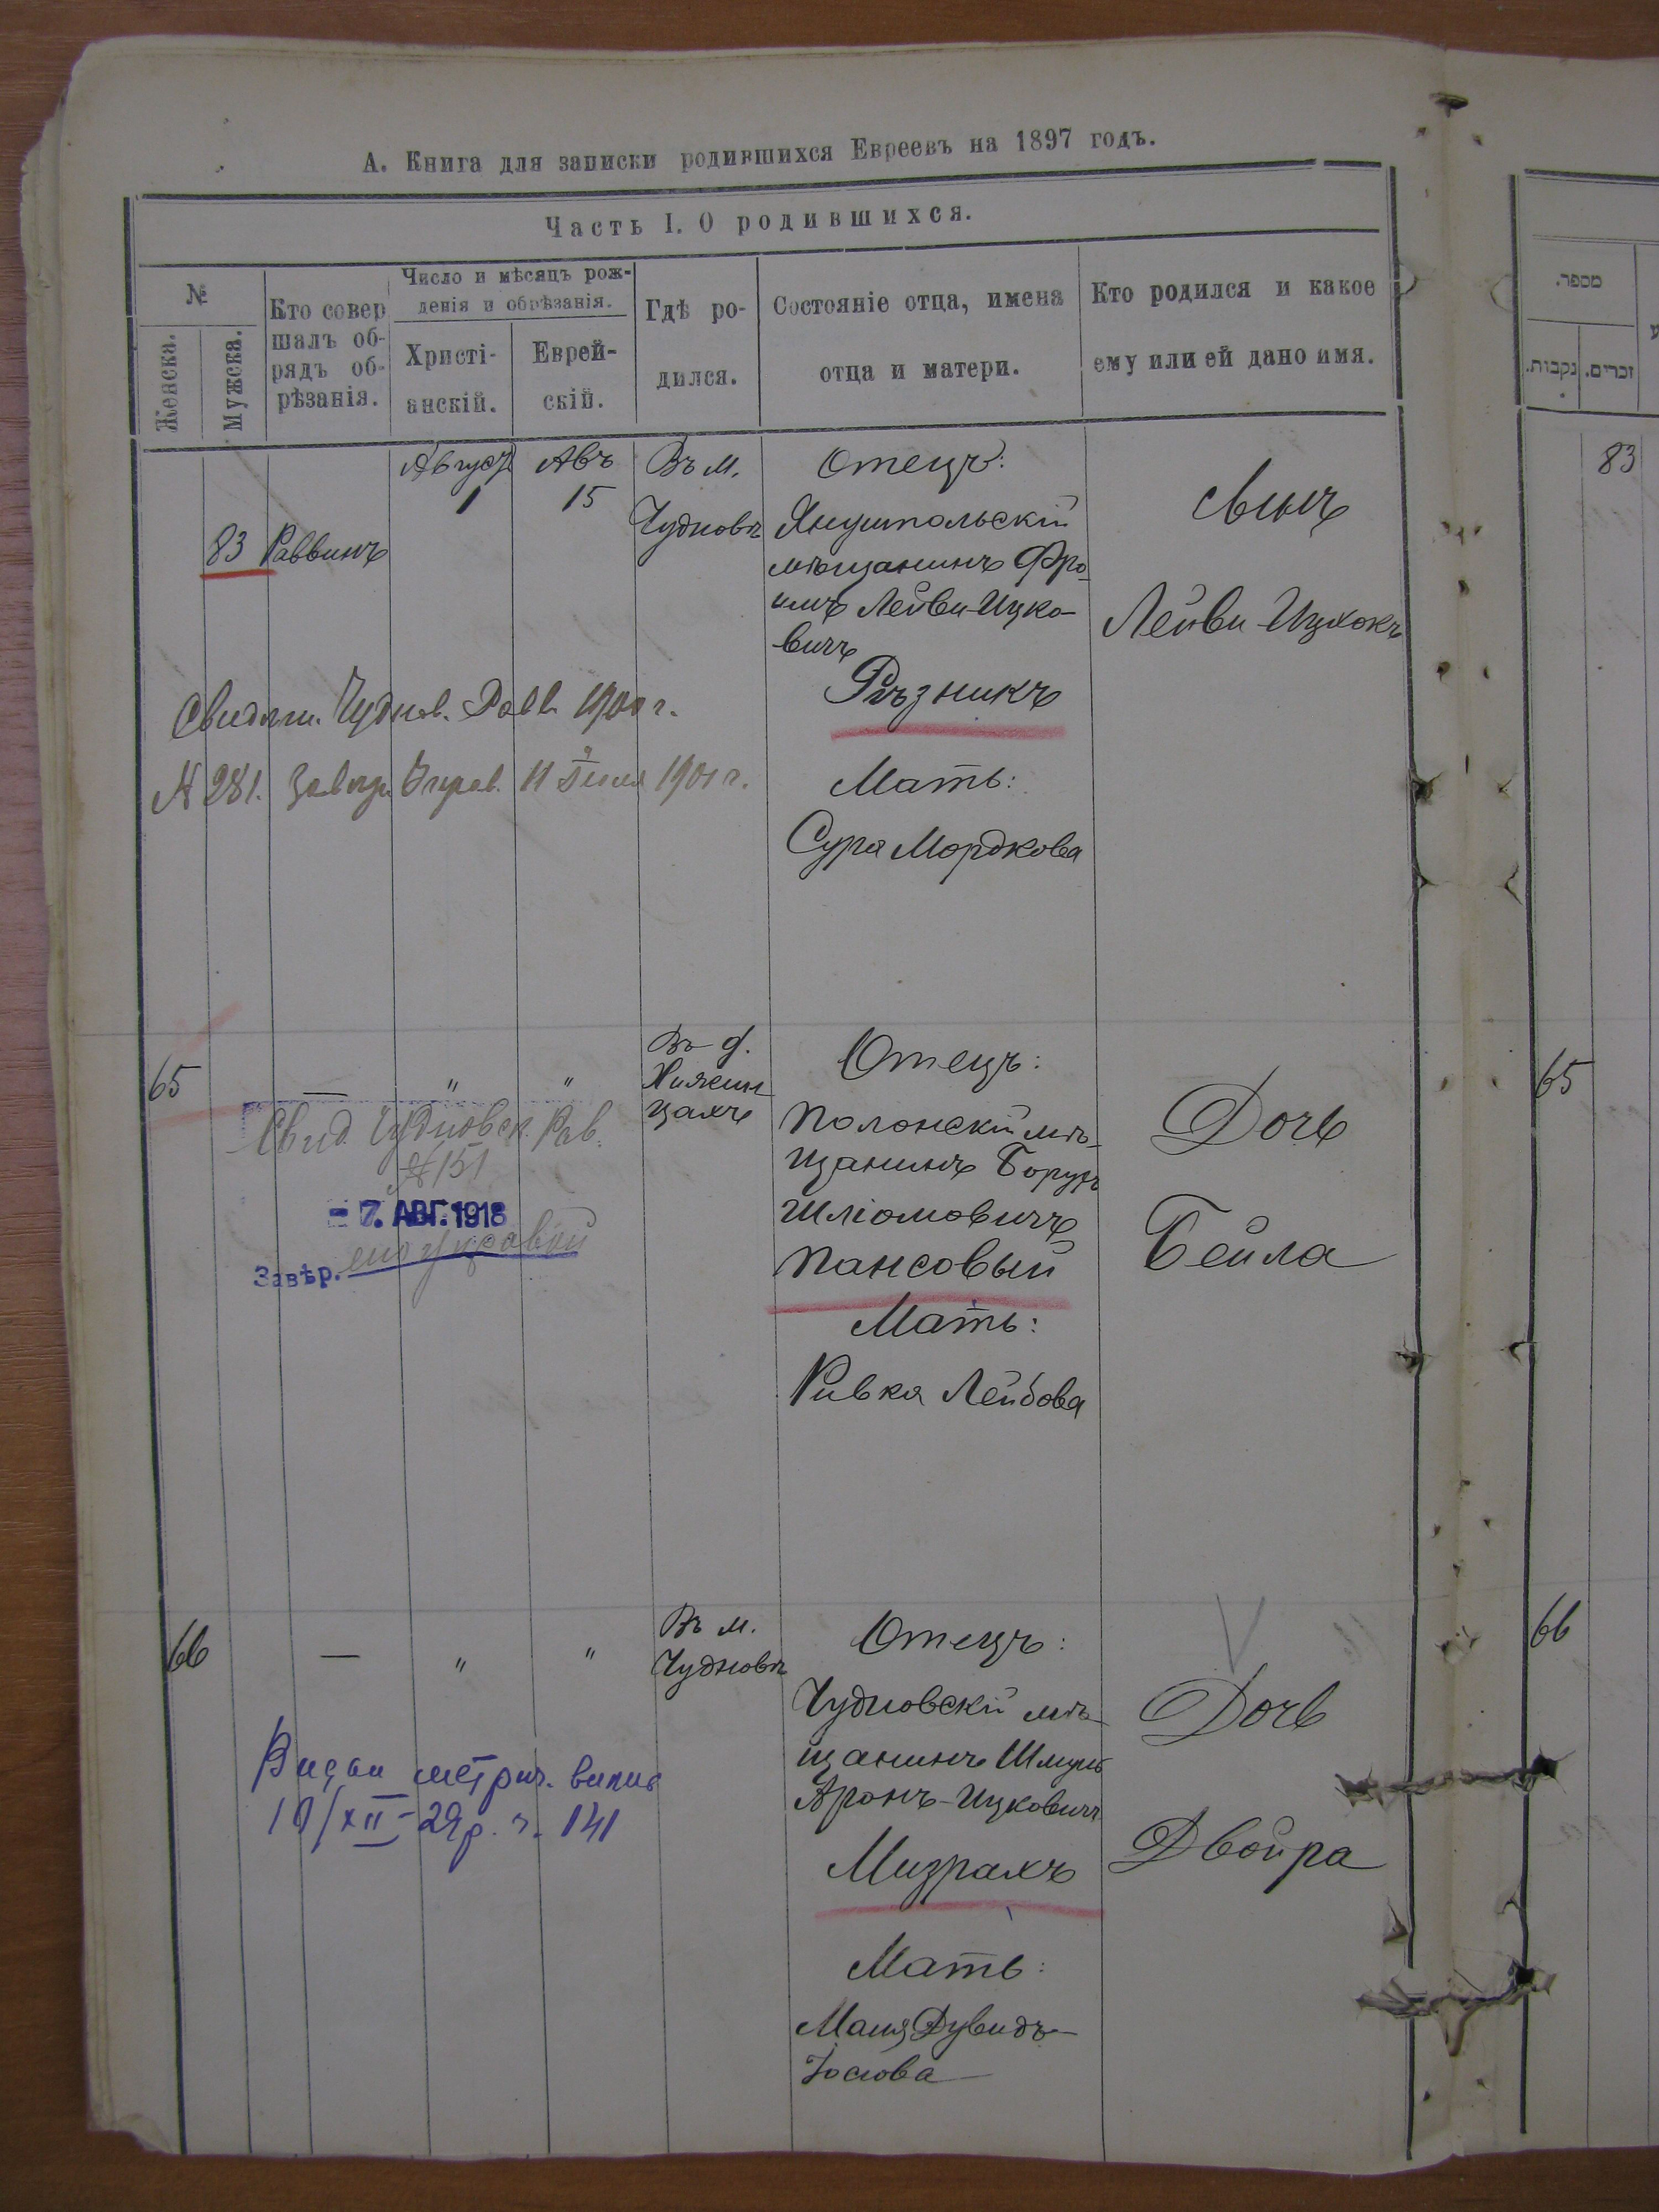 А. Книга для записки родившихся Евреевъ на 1897 годъ.
Часть I. О родившихся.
№
Женска.
Мужска.
Кто совер
шалъ об-
рядъ об-
рѣзанія.
Число и мѣсяцъ рож-
денія и обрѣзанія.
Христі-
анскій.
Еврей-
скій.
Гдѣ ро-
дился.
Состояніе отца, имена
отца и матери.
Кто родился и какое
ему или ей дано имя.
מספר.
נקבות.
זכרים.
83
Раввинъ
Августъ
1
Авъ
15
Въ м.
Чудновѣ
Отецъ:
Янушпольскій
мѣщанинъ Фро-
имъ Лейви-Ицко-
вичъ
Рѣзникъ
Мать:
Сура Мордкова
Сынъ
Лейви-Ицхокъ
83
Чуднов. Равв. 1900 г.
№ 281. 11 1901 г.
65
—
"
"
Въ д.
Отецъ:
Полонскій мѣ-
щанинъ Борухъ
Шліомовичъ
Пансовый
Мать:
Ривка Лейбова
Дочь
Бейла
65
Свид. Чудновск. Рав.
№ 151
- 7. АВГ. 1918
Завѣр.
66
—
"
"
Въ м.
Чудновѣ
Отецъ:
Чудновскій мѣ-
щанинъ Шмуль
Аронъ-Ицковичъ
Мизрахъ
Мать:
Дувидъ-
Іосіова
V
Дочь
Двойра
66
Видан метрич. випис
10/XII-29р. ч. 141